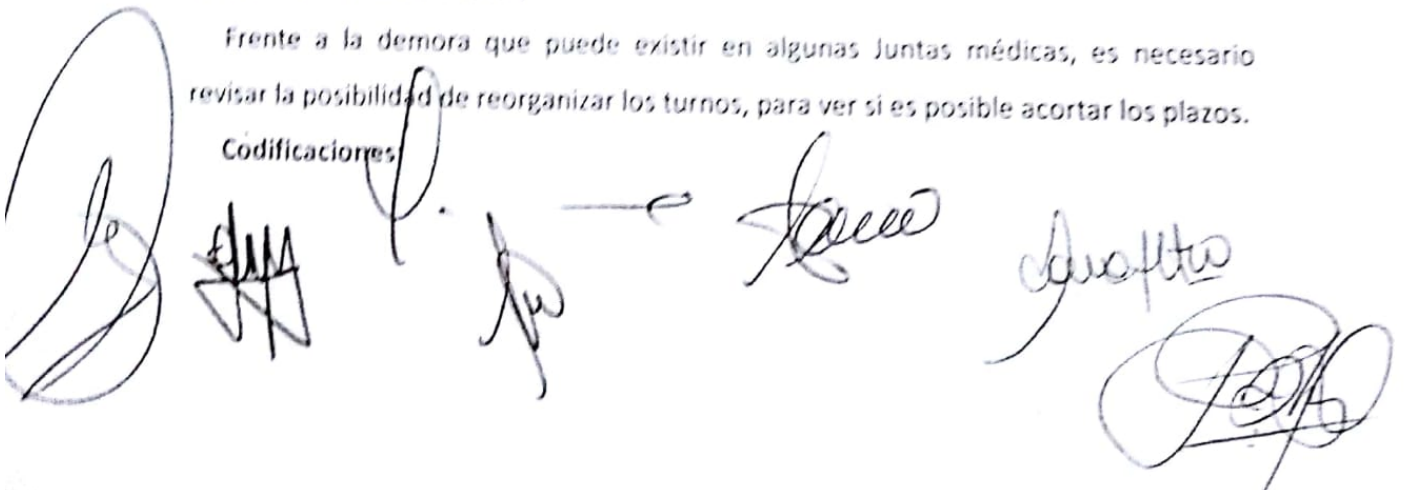 Frente a la demora que puede existir en algunas Juntas médicas, es necesario
revisar la posibilidad de reorganizar los turnos, para ver si es posible acortar los plazos.
Codificaciones